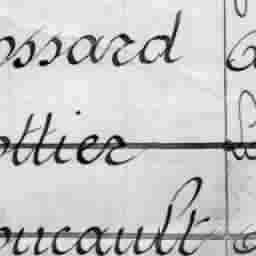 ossard
ottier
oucault